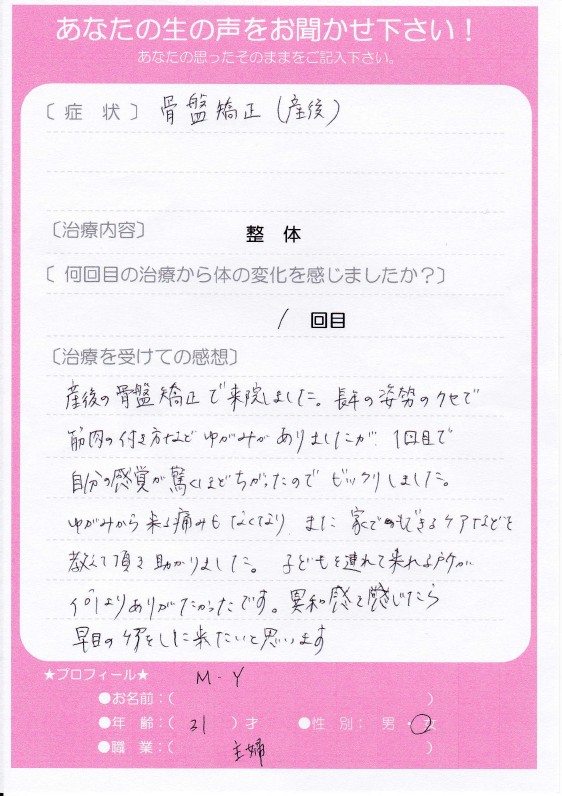 あなたの生の声をお聞かせ下さい!
あなたの思ったそのままをご記入下さい。
〔 症 状 〕 骨盤矯正 (産後)
〔治療内容〕
整 体
〔 何回目の治療から体の変化を感じましたか?〕
1 回目
〔治療を受けての感想〕
産後の骨盤矯正で来院しました。長年の姿勢のクセで
筋肉の付き方など ゆがみが ありましたが 1回目で
自分の感覚が驚くほどちがったので ビックリしました。
ゆがみから来る痛みもなくなり また 家でもできるケアなどを
教えて頂き 助かりました。 子どもを連れて来れる所が
何よりありがたかったです。異和感を感じたら
早目の をしに来たいと思います
★プロフィール★ M・Y
●お名前:( )
●年 齢:( 31 )才 ●性 別: 男 ・ 女
●職 業:( 主婦 )